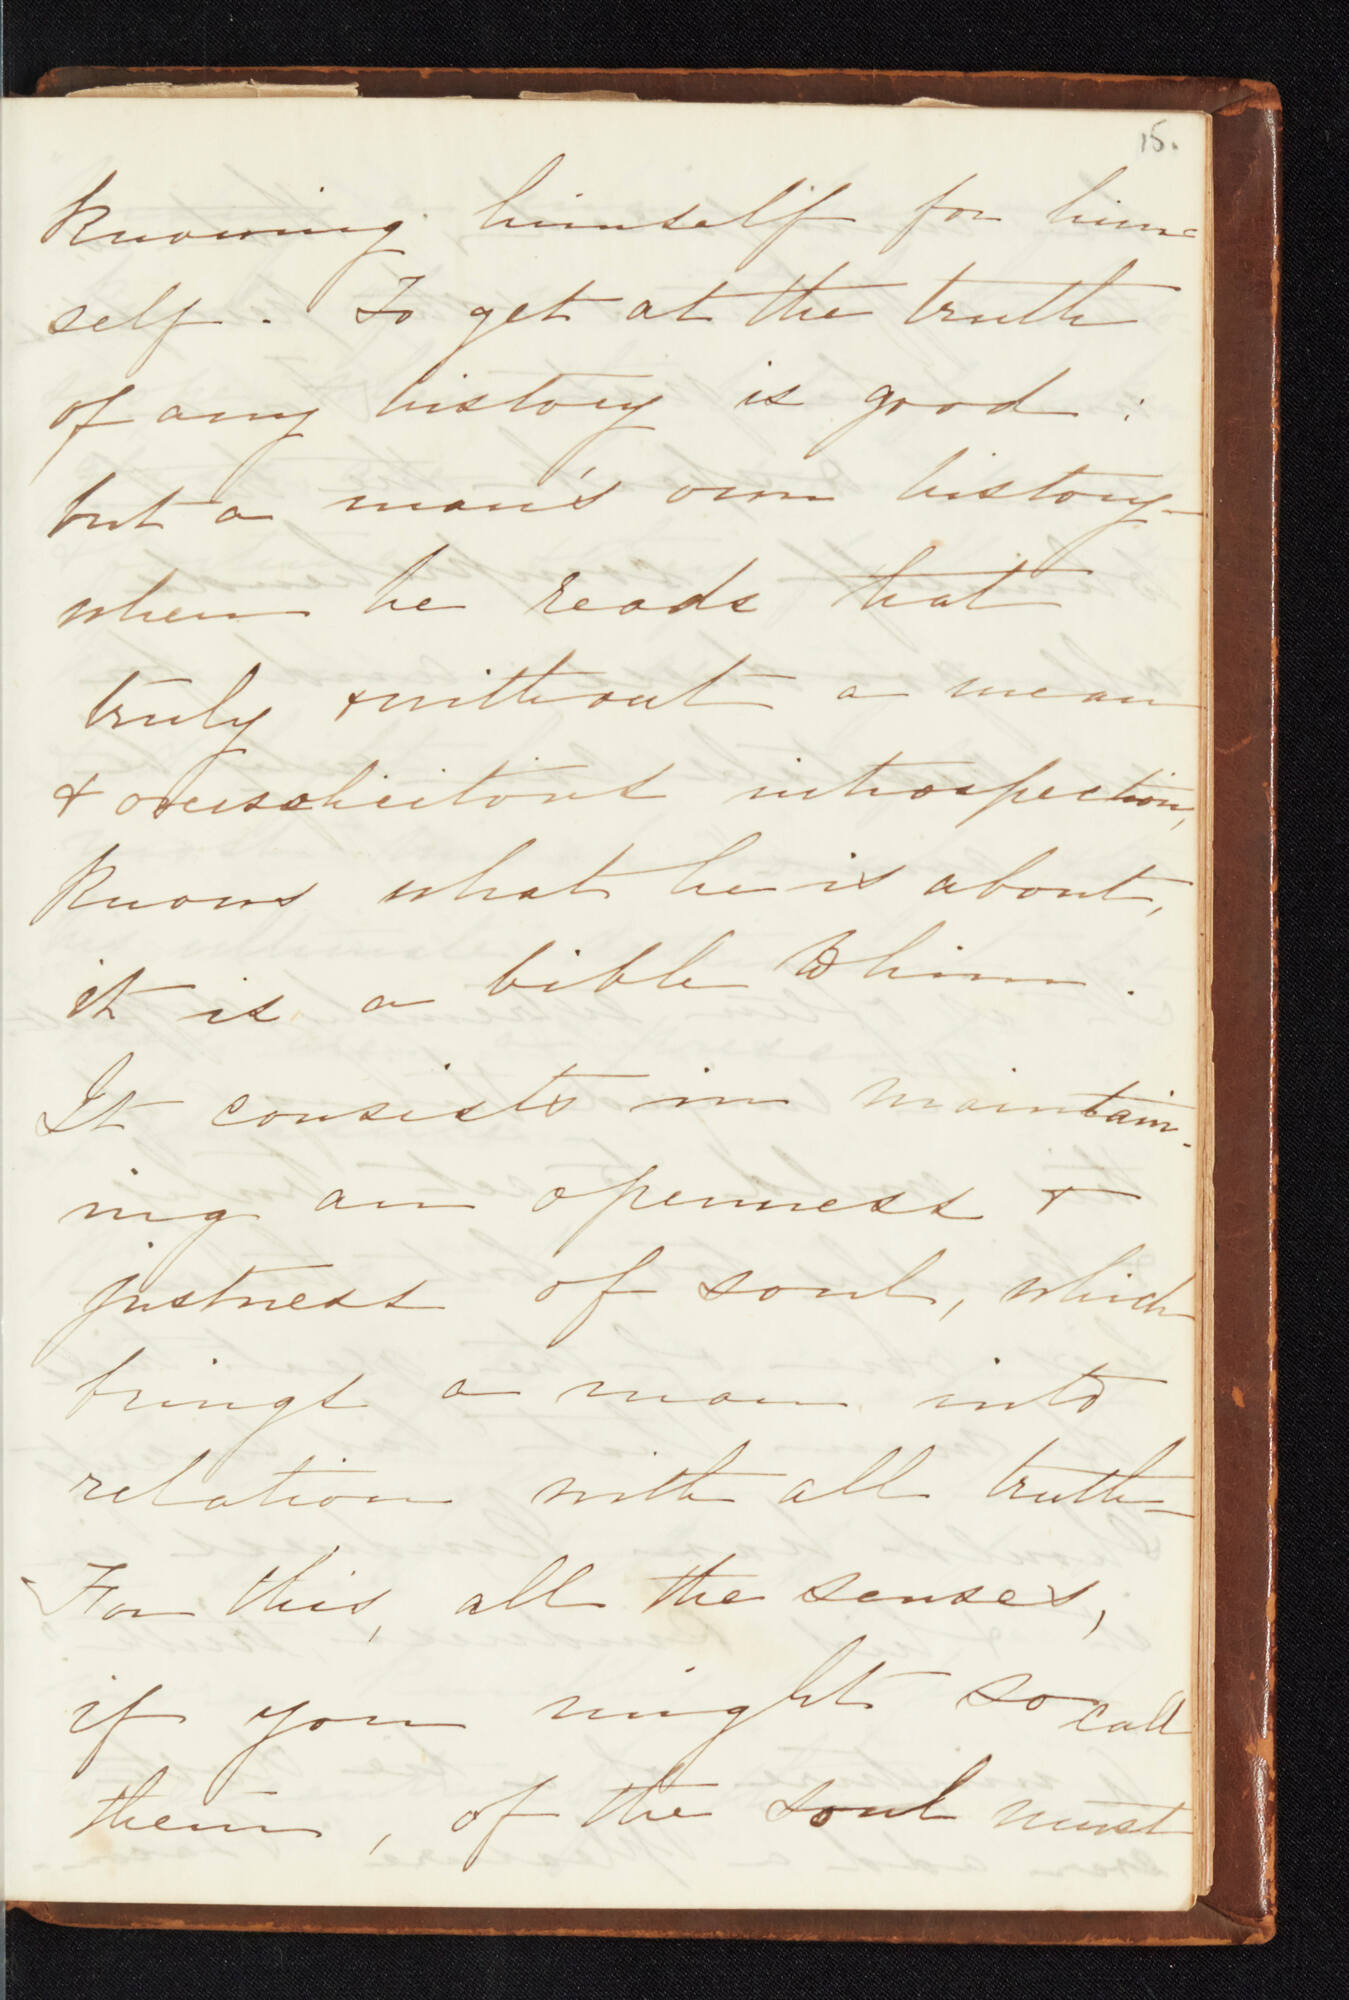 15.
knowing himself for him=
self. To get at the truth
of any history is good :
but a man's own history -
when he reads that
truly & without a mean
& oversolicitous introspection,
knows what he is about,
it is a bible to him.
It consists in maintain-
ing an openness &
justness of soul, which
brings a man into
relation with all truth -
For this, all the senses,
if you might so call
them, of the soul must